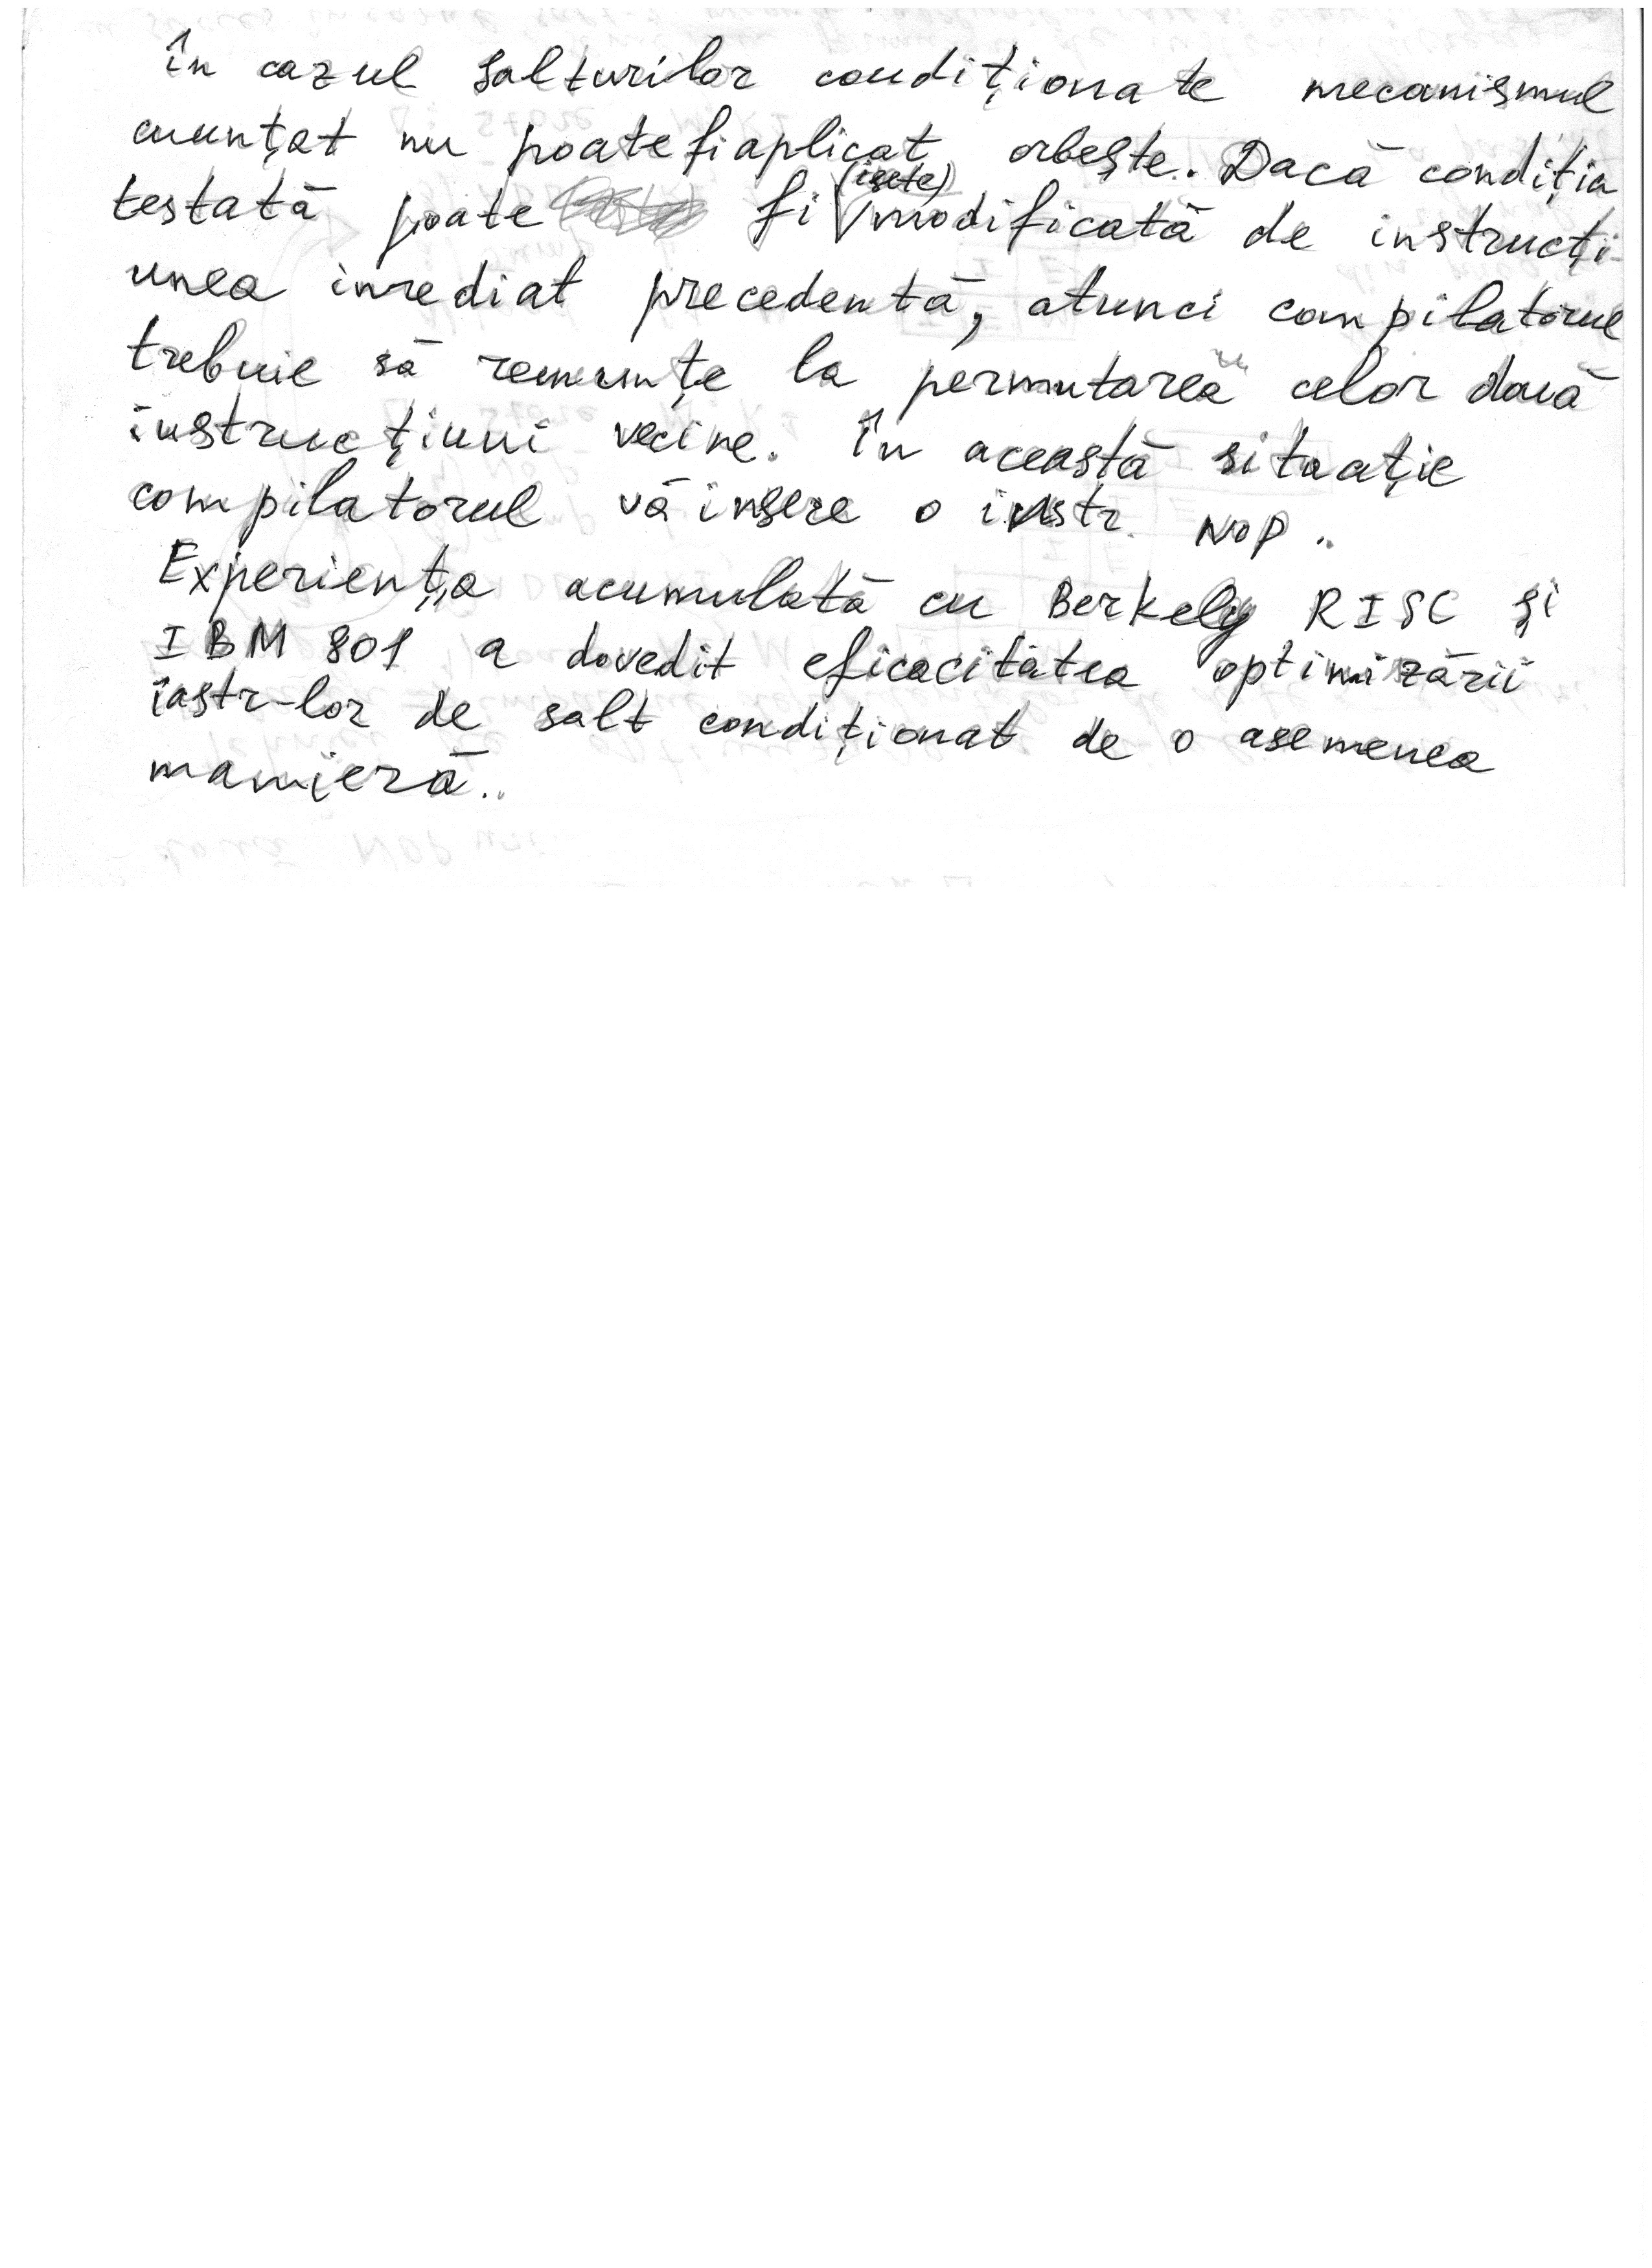 În cazul salturilor condiționate mecanismul
enunțat nu poate fi aplicat orbește. Dacă condiția
testată poate fi (este) modificată de instrucți-
unea imediat precedentă, atunci compilatorul
trebuie să renunțe la permutarea celor două
instrucțiuni vecine. În această situație
compilatorul vă insere o instr. NOP.
Experiența acumulată cu Berkely RISC și
IBM 801 a dovedit eficacitatea optimizării
instr-lor de salt condiționat de o asemenea
manieră.